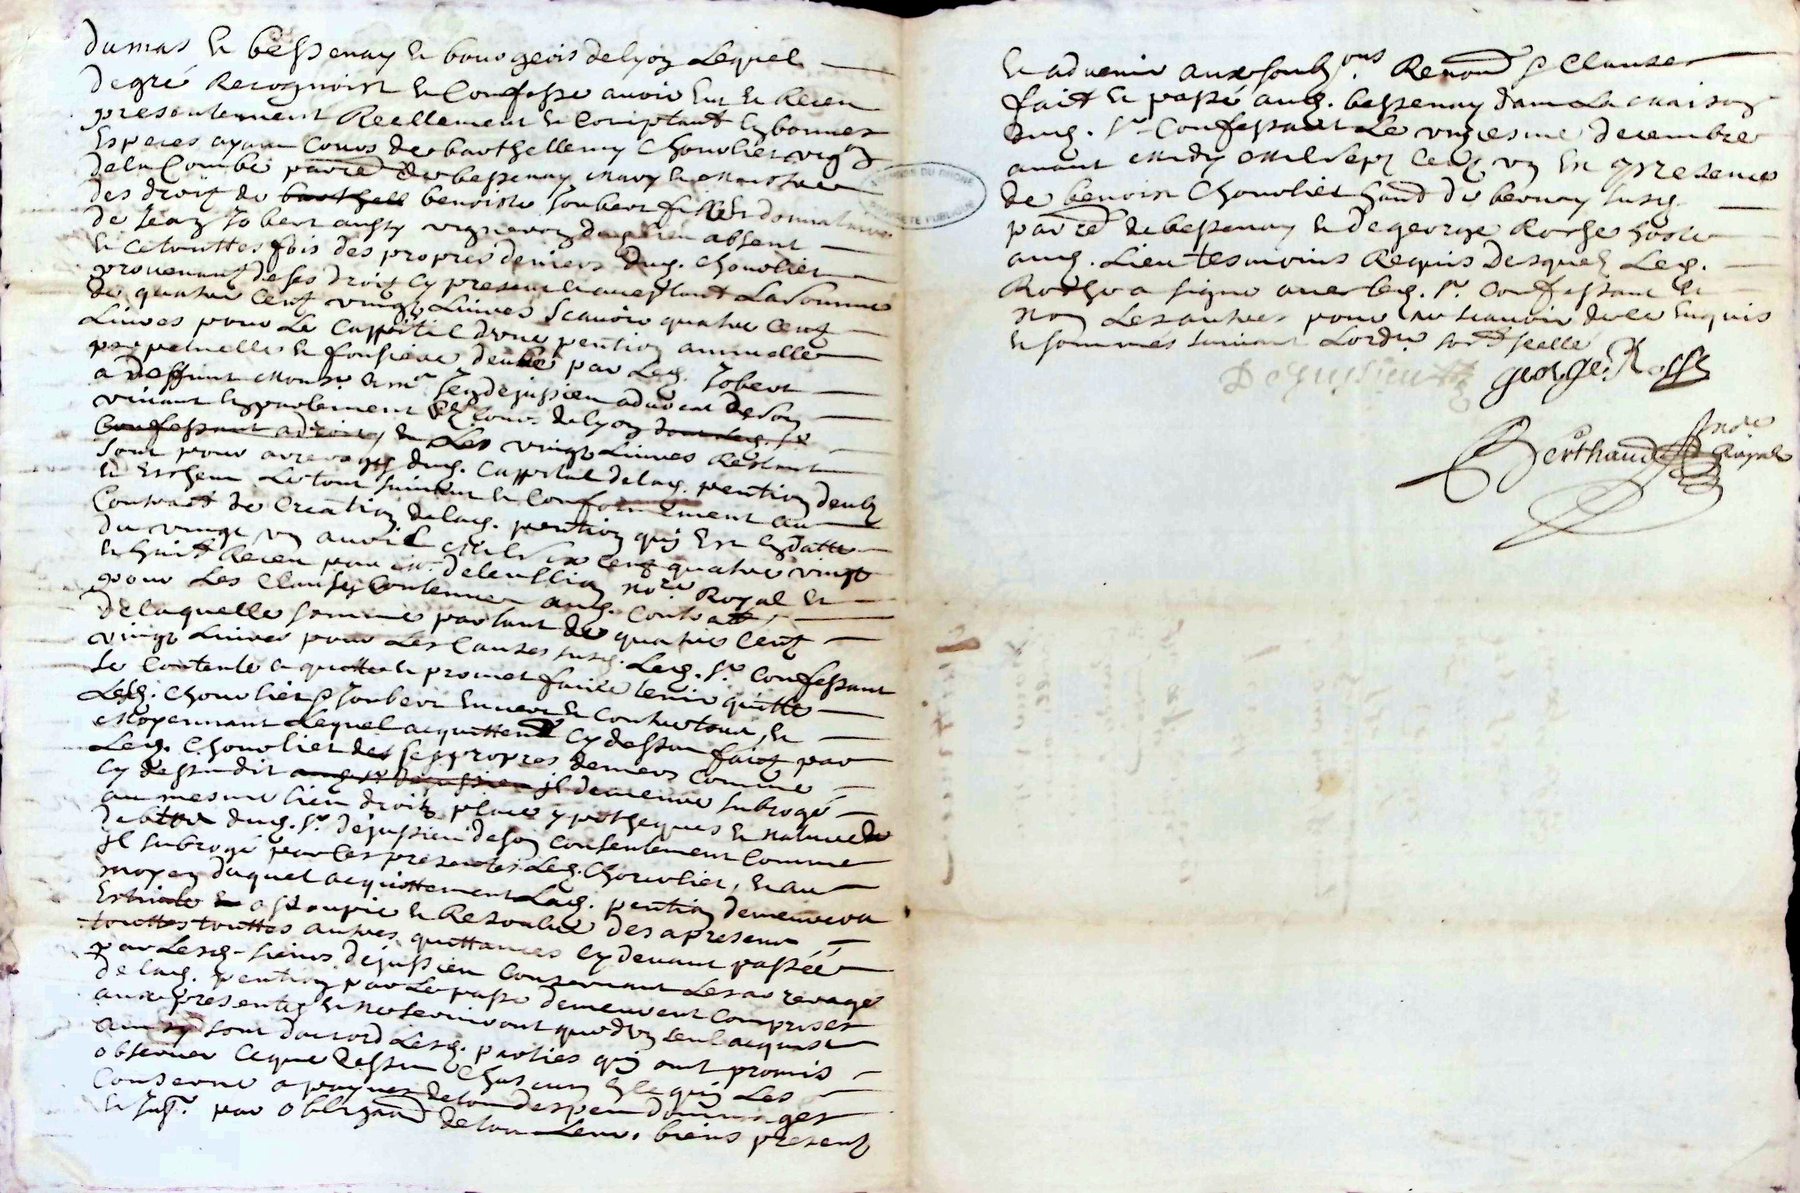 dumas & bessenay & bourgeois de lyon Lequel
De gré Recognoist & Confesse avoir Eut & Receu
presentement Reellement & Comptant En bonnes
Especes ayant Cours de barthellemy Chonolier vig.on
de la Combe parr.e de bessenay mary & maistre
des droit de benoiste Joubert fille & donnataire
de Jean Jobert aussy vigneron dud. lieu absent
& Ce touttesfois des propres deniers dud. Chonolier
provenant de ses droit Cy present & acceptant La Somme
de quatre Cent vingt Livres Scavoir quatre Cent
Livres pour Le Cappital d'une pention annuelle
perpetuelle & fonsiere deube par Led. Jobert
a deffunt Mons.r M.r dejussieu advocat de son
vivant En parlement & Cour. de Lyon
& Les vingt Livres Restant
Sont pour arrerages dud. Cappital de lad. pention deub
& Escheu Le tout suivant & Conformement au
Contract de Creation de lad. pention quy Est En datte
du vingt un avril Mil Six Cent quatre vingt
& huict Receu par no.re Royal &
pour Les Clauses Contenues aud. Contract,
De laquelle somme partant de quatre Cent
vingt Livres pour Les Causes susd. Led. S.r Confessant
Se Contente a quitte & promet faire tenir quitte
Lesd. Chonolier & Joubert Envers & Contre tous, &
Moyennant Lequel acquittem.t Cy dessus faict par
Led. Chonolier des ses propres deniers Comme
Cy dessus dit il demeure subrogé
au mesme lieu droit place ypotheques & nature de
debtes dud. S.r dejussieu de son Consentement Comme
Il subroge par Ces presentes Led. Chonolier, & au
moyen duquel acquittement Lad. pention demeurera
assoupie & Resolue des apresent
touttes autres quittances Cy devant passée
par Lesd. sieurs dejussieu Consernant Les arrerage
de lad. pention par Le passé demeurent Comprises
aux presentes & ne serviront que d'un seul acquist
ainsy sont d'accord Lesd. parties quy ont promis
observer Ce que dessus Chascun En Ce quy Les
Conserne a paynes de tous despens dommages
& Int. par obligaon de tous Leurs biens present
& advenir aux Soub.ons Renon.on & Clauses
fait & passé aud. bessenay dans La maison
dud. S.r Confessant Le vingiesme decembre
avant midy mil Sept Cent un En presence
de benoist Chonolier hand de bernay susd.
parr.e de bessenay & de george Roche hoste
aud. Lieu tesmoins Requis Desquels Led.
Roche a signe avec led. S.r Confessant &
non Les autres pour ne scavoir de ce Enquis
& sommes suivant Lordre
Dejussieu george Roche
Berthaud no.re Royal